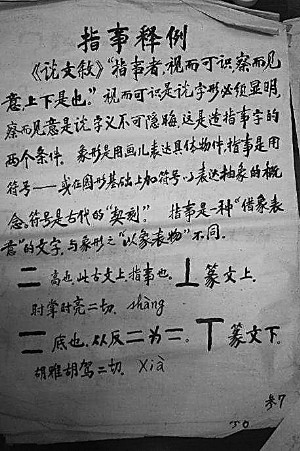 指事释例
《说文叙》“指事者，视而可识，察而见
意，上下是也。”视而可识是说字形必须显明，
察而见意是说字义不可隐晦，这是造指事字的
两个条件。象形是用画儿表达具体物件，指事是用
符号——或在图形基础上加符号以表达抽象的概
念。符号是古代的“契刻”。指事是一种“借象表
意”的文字，与象形之“以象表物”不同.
二 高也，此古文上，指事也。丄 篆文上.
时掌时亮二切. shàng
二 底也，从反二为二。丅 篆文下.
胡雅胡驾二切. Xià
参7
50